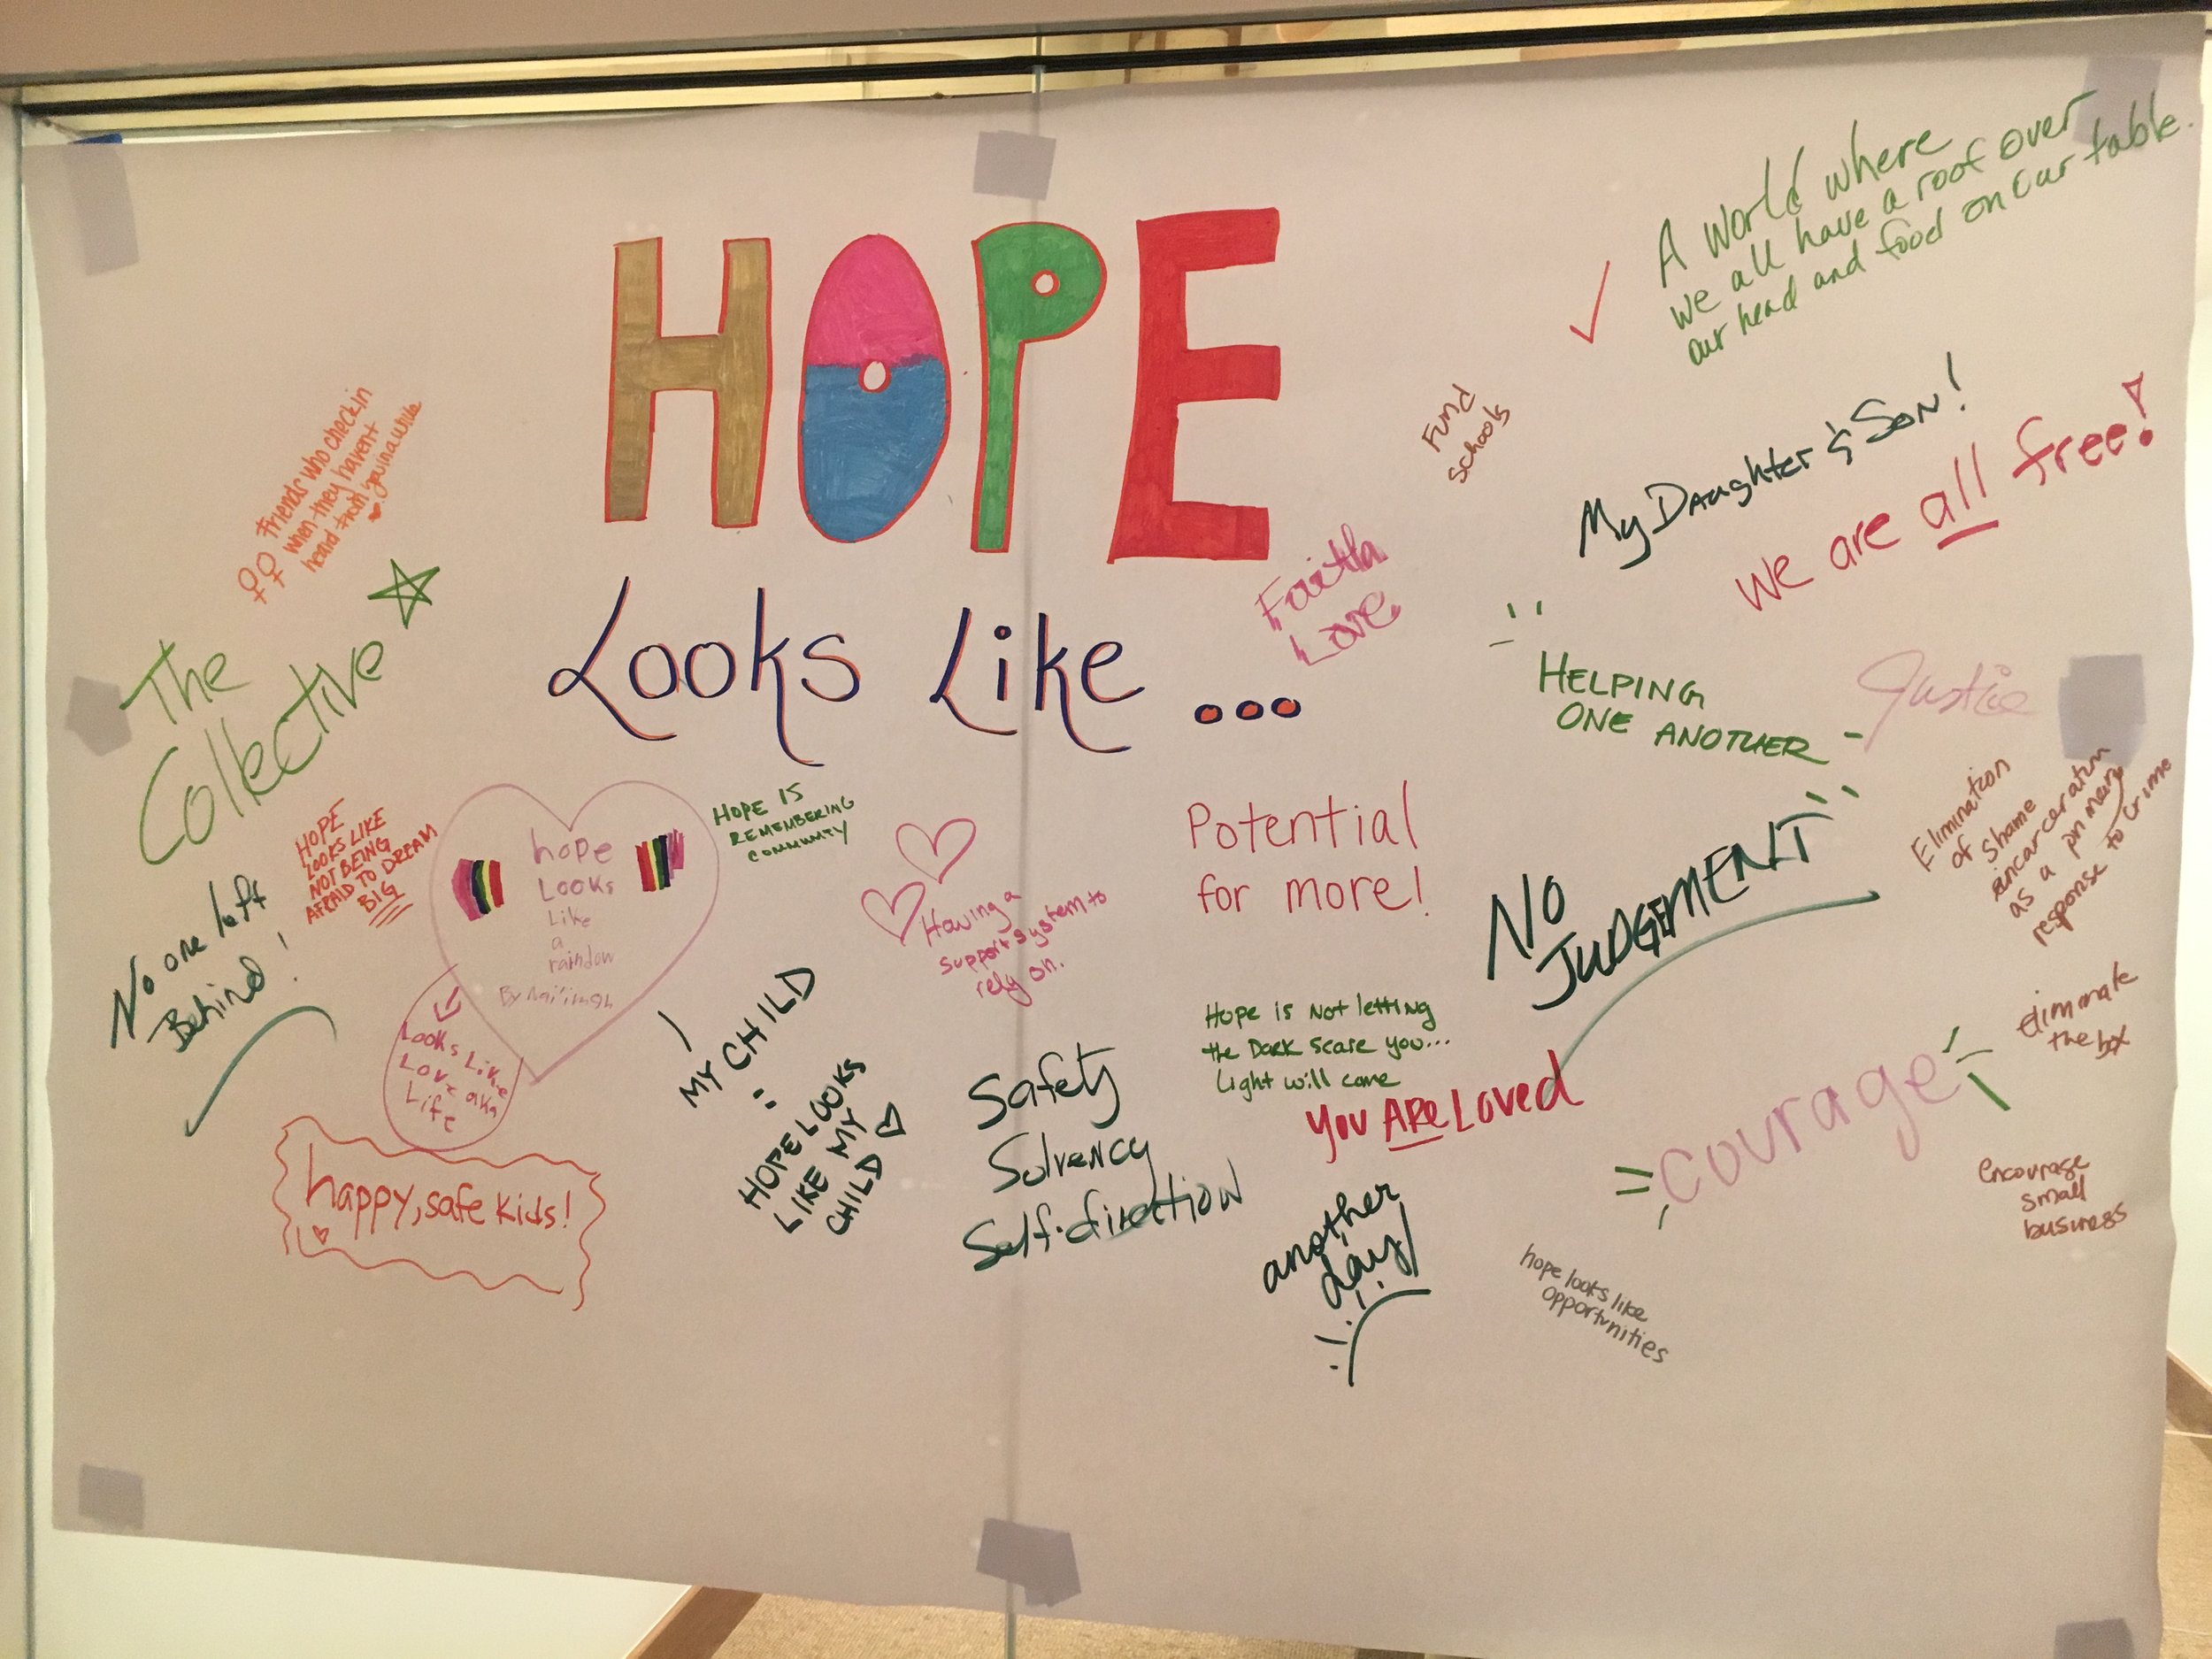 HOPE
Looks Like ...
A world where
we all have a roof over
our head and food on our table.
Fund
schools
My Daughter & Son!
We are all free!
Friends who check in
when they havent
heard from you in a while
Faith
Love
The
Collective
HELPING
ONE ANOTHER
Justice
HOPE
LOOKS LIKE
NOT BEING
AFRAID TO DREAM
BIG
hope
Looks
Like
a
rainbow
By
HOPE IS
REMEMBERING
COMMUNITY
Having a
support system to
rely on.
Potential
for more!
NO
JUDGEMENT
Elimination
of shame
incarceration
as a primary
response to crime
No one left
Behind!
Looks Like
Love aka
Life
MY CHILD
HOPE LOOKS
LIKE MY
CHILD
Hope is Not letting
the Dark scare you...
Light will come
eliminate
the box
Safety
Solvency
Self-direction
You ARE Loved
Courage
happy, safe kids!
another
day!
encourage
small
business
hope looks like
opportunities